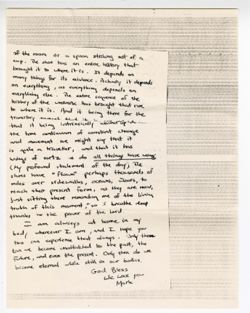 of the moon or a spoon stirring out of a
cup. The shoe has an entire history that
brought it to where it is. It depends on
many things for its existence. Actually it depends
on everything, as everything depends on
everything else. The entire sequence of the
history of the universe has brought that shoe
to where it is. And it being there for the
that it being intrinsically
the time continuum of constant change
and movement we might say that it
is quite a traveller, and that it has
ways of sorts. So do all things have ways
(my profound statement of the day). The
shoes have "flown" perhaps thousands of
miles over sidewalks, oceans, to
reach their present form, as they are now,
just sitting there reminding me of the living
truth of this moment, so I breathe deep
thanks to the power of the Lord
I am always at home, in my
body, wherever I am, and I hope you
too can experience that always. Only then
can we become unattached to the past, the
future, and even the present. Only then do we
become eternal while still in our bodies.
God Bless
We Love you
Mark